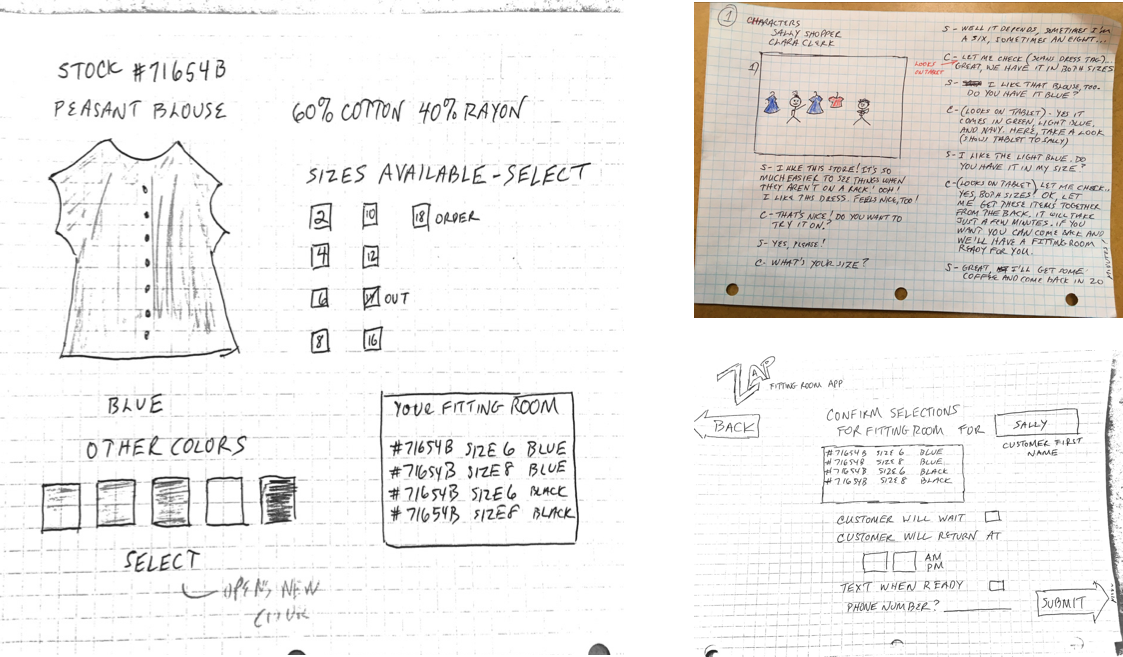 STOCK #71654B
PEASANT BLOUSE
60% COTTON 40% RAYON
SIZES AVAILABLE - SELECT
2 10 18 ORDER
4 12
6 14 OUT
8 16
BLUE
OTHER COLORS
SELECT
OPENS NEW
YOUR FITTING ROOM
#71654B SIZE 6 BLUE
#71654B SIZE 8 BLUE
#71654B SIZE 6 BLACK
#71654B SIZE 8 BLACK
1
CHARACTERS
SALLY SHOPPER
CLARA CLERK
1)
S - I LIKE THIS STORE! IT'S SO
MUCH EASIER TO SEE THINGS WHEN
THEY AREN'T ON A RACK! OOH!
I LIKE THIS DRESS. FEELS NICE, TOO!
C - THAT'S NICE! DO YOU WANT TO
TRY IT ON?
S - YES, PLEASE!
C - WHAT'S YOUR SIZE?
S - WELL IT DEPENDS, SOMETIMES I'M
A SIX, SOMETIMES AN EIGHT...
LOOKS
ON TABLET
C - LET ME CHECK (SCANS DRESS TAG)...
GREAT, WE HAVE IT IN BOTH SIZES
S - I LIKE THAT BLOUSE, TOO.
DO YOU HAVE IT BLUE?
C - (LOOKS ON TABLET) - YES IT
COMES IN GREEN, LIGHT BLUE,
AND NAVY. HERE, TAKE A LOOK
(SHOWS TABLET TO SALLY)
S - I LIKE THE LIGHT BLUE. DO
YOU HAVE IT IN MY SIZE?
C - (LOOKS ON TABLET) LET ME CHECK..
YES, BOTH SIZES! OK, LET
ME GET THESE ITEMS TOGETHER
FROM THE BACK. IT WILL TAKE
JUST A FEW MINUTES. IF YOU
WANT YOU CAN COME BACK AND
WE'LL HAVE A FITTING ROOM
READY FOR YOU.
S - GREAT, I'LL GET SOME
COFFEE AND COME BACK IN 20
ZAP
FITTING ROOM APP
BACK
CONFIRM SELECTIONS
FOR FITTING ROOM FOR SALLY
CUSTOMER FIRST
NAME
#71654B SIZE 6 BLUE
#71654B SIZE 8 BLUE
#71654B SIZE 6 BLACK
#71654B SIZE 8 BLACK
CUSTOMER WILL WAIT
CUSTOMER WILL RETURN AT
AM
PM
TEXT WHEN READY
PHONE NUMBER?
SUBMIT